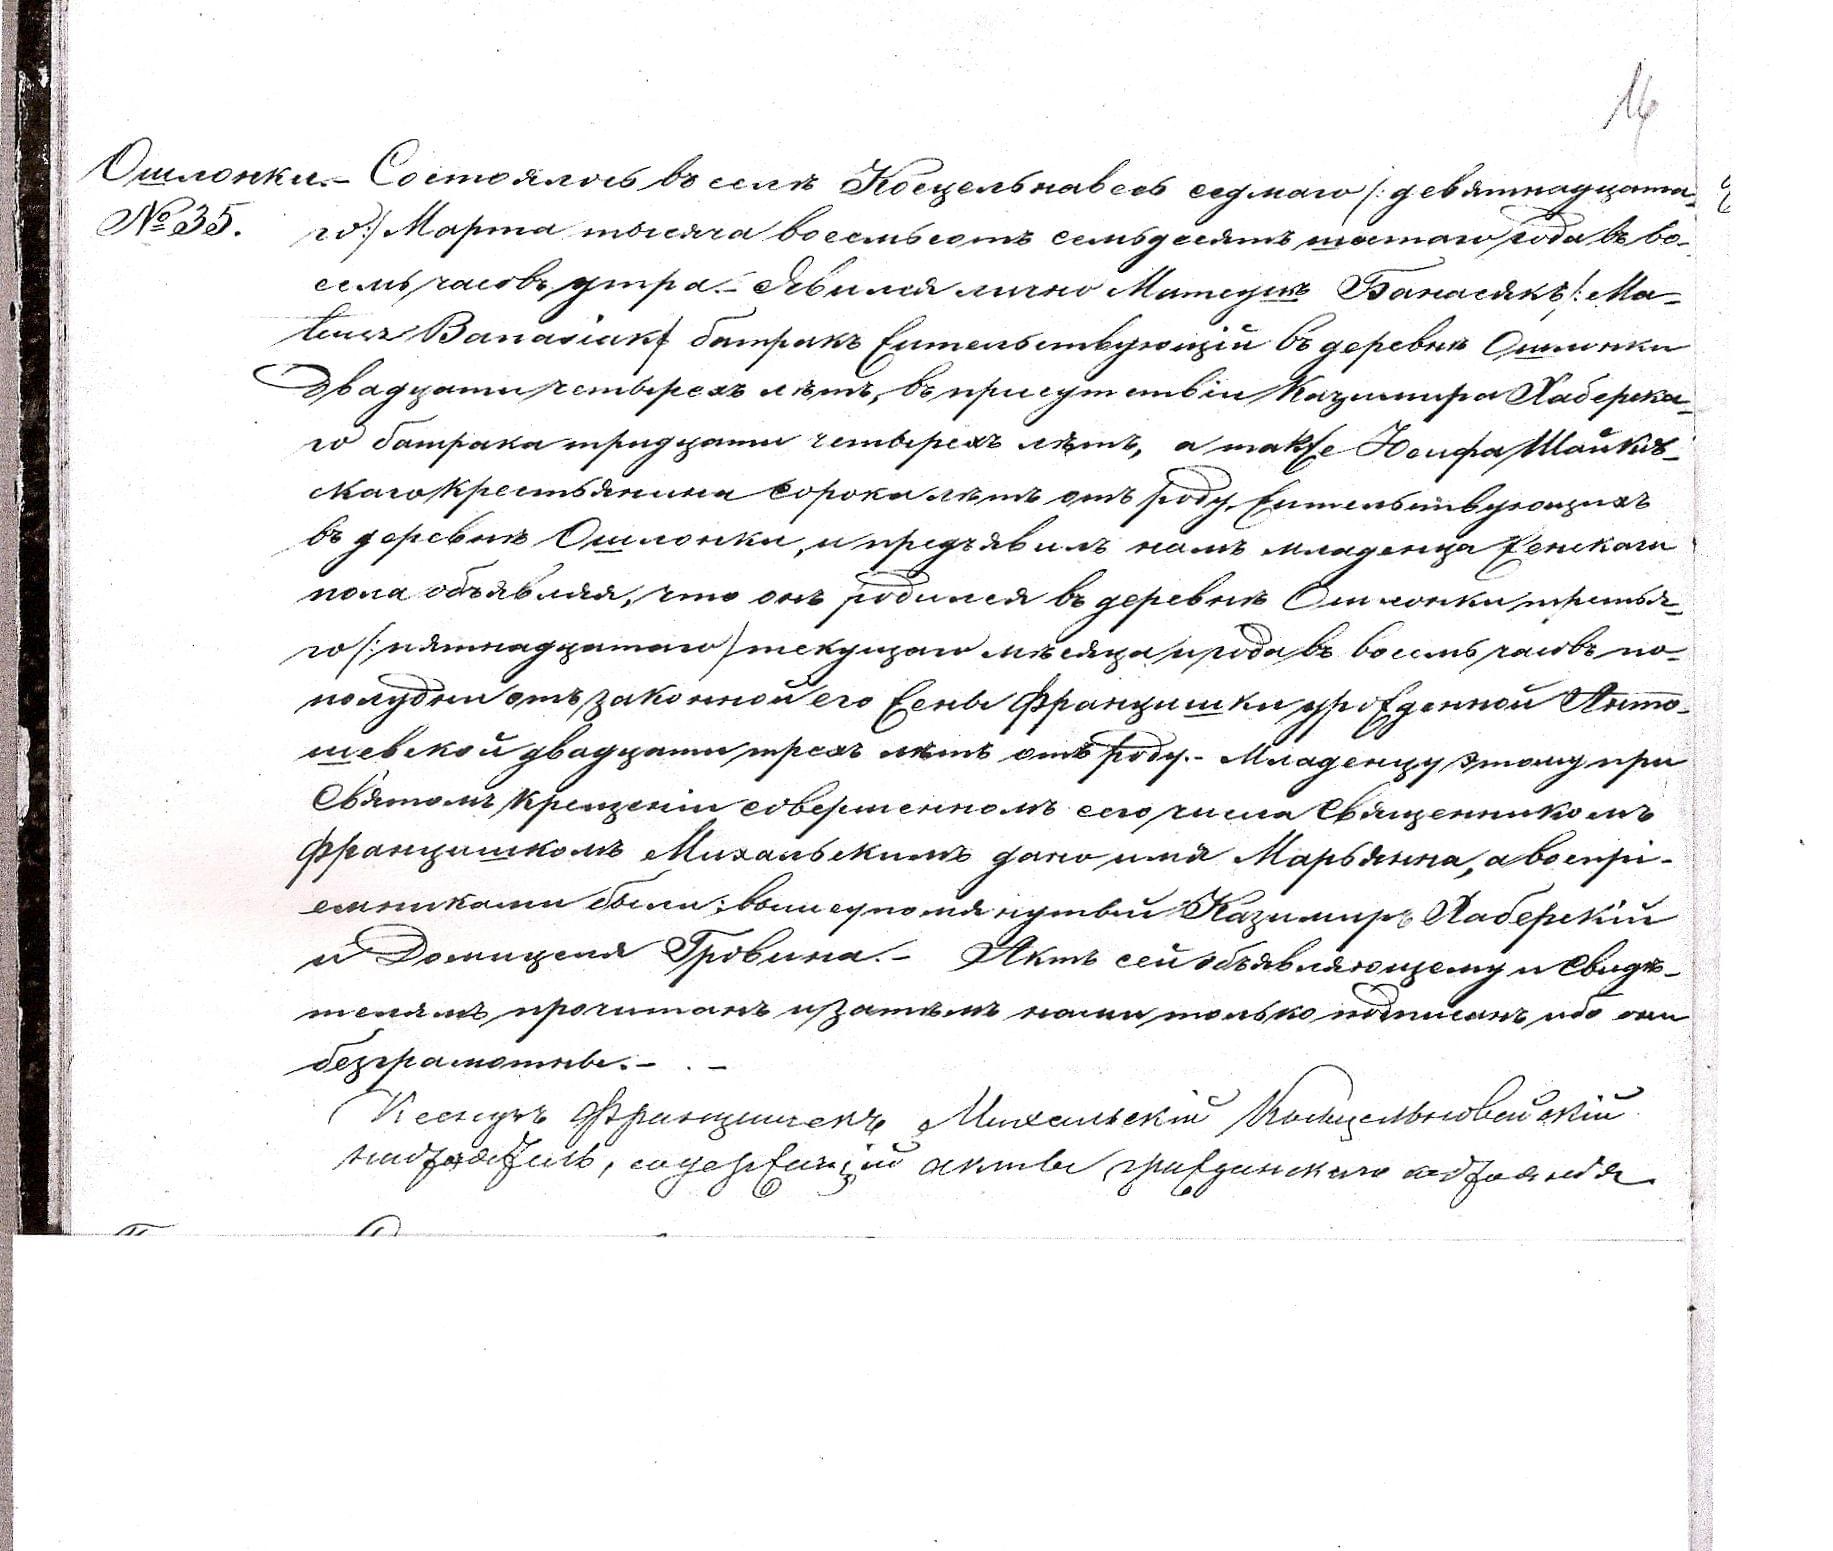 16
Ошлонки.– Состоялось въ селѣ Косцельнавесь седмаго /: девятнадцата-
№ 35. го :/ Марта тысяча восемьсотъ семьдесятъ шестаго года въ во-
семь часовъ утра.– Явился лично Матеушъ Банасякъ /: Ma-
teusz Banasiak / батракъ жительствующій въ деревнѣ Ошлонки
двадцати четырехъ лѣтъ, въ присутствіи Казимира Хаберска-
го батрака тридцати четырехъ лѣтъ, а также Юсифа Шайков-
скаго крестьянина сорока лѣтъ отъ роду, жительствующихъ
въ деревнѣ Ошлонки, и предъявилъ намъ младенца женскаго
пола объявляя, что онъ родился въ деревнѣ Ошлонки третья-
го /: пятнадцатаго / текущаго мѣсяца и года въ восемь часовъ по-
полудни отъ законной его жены Францишки урожденной Янто-
шевской двадцати трехъ лѣтъ отъ роду.– Младенцу этому при
Святомъ Крещеніи совершенномъ сего числа Священникомъ
Францишкомъ Михальскимъ дано имя Марьянна, а воспрі-
емниками были: вышеупомянутый Казимиръ Хаберскій
и Домицеля Гровина.– Актъ сей объявляющему и Свидѣ-
телямъ прочитанъ и затѣмъ нами только подписанъ ибо они
безграмотны.– . –
Ксендзъ Францишекъ Михальскій Косцельновейскій
настоятель, содержащій акты гражданскаго состоянія